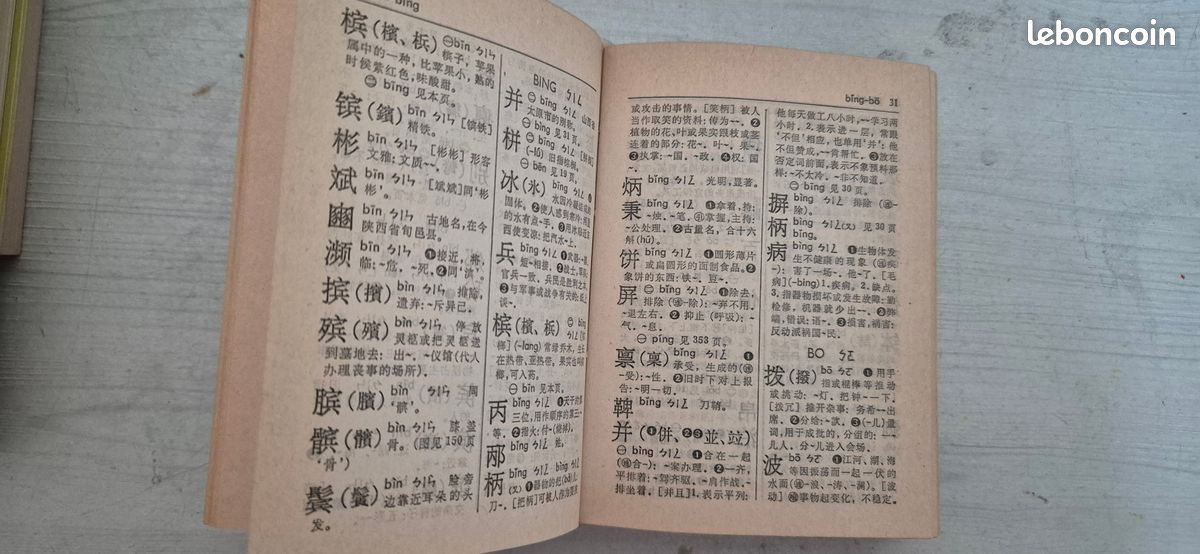 leboncoin
bīng
槟(檳、梹) ㊀bīn ㄅㄧㄣ
槟子，苹果
属中的一种，比苹果小，熟的
时候紫红色，味酸甜。
㊁ bīng 见本页。
镔(鑌) bīn ㄅㄧㄣ [镔铁]
精铁。
彬 bīn ㄅㄧㄣ [彬彬]形容
文雅：文质~~。
斌 bīn ㄅㄧㄣ [斌斌]同‘彬
彬’。
豳 bīn ㄅㄧㄣ 古地名，在今
陕西省旬邑县。
濒 bīn ㄅㄧㄣ ❶接近，将，
临：~危。~死。❷同‘滨’。
摈(擯) bìn ㄅㄧㄣ 排除，
遗弃：~斥异己。
殡(殯) bìn ㄅㄧㄣ 停放
灵柩或把灵柩送
到墓地去：出~。~仪馆(代人
办理丧事的场所)。
膑(臏) bìn ㄅㄧㄣ 同
‘髌’。
髌(髕) bìn ㄅㄧㄣ 膝盖
骨。(图见150页
‘骨’)
鬓(鬢) bìn ㄅㄧㄣ 脸旁
边靠近耳朵的头
发。
BING ㄅㄧㄥ
并 ㊀ bīng ㄅㄧㄥ 山西省
太原市的别称。
㊁ bìng 见31页。
栟 ㊀ bīng ㄅㄧㄥ
(-lǘ) 旧指棕榈。
㊁ bēn 见19页。
冰(氷) bīng ㄅㄧㄥ ❶
水因冷凝结成的
固体。❷使人感到寒冷：
的水有点~手。❸用冰贴近东
西使变凉：把汽水~上。
兵 bīng ㄅㄧㄥ ❶武器：
短~相接。❷战士，军队：
官兵一致。兵民是胜利之本。
❸与军事或战争有关的：纸上
谈~。
槟(檳、梹) ㊀ bīng
ㄅㄧㄥ [槟
榔](-lang) 常绿乔木，生长
在热带、亚热带。果实也叫槟
榔，可入药。
㊁ bīn 见本页。
丙 bǐng ㄅㄧㄥ ❶天干的第
三位，用作顺序的第三：~
等。❷指火：付~(烧掉)。
邴 bǐng ㄅㄧㄥ 姓。
柄 bǐng ㄅㄧㄥ
(又) ❶器物的把(bà)儿：
刀~。[把柄]可被人作为要挟
bǐng-bō 31
或攻击的事情。[笑柄]被人
当作取笑的资料：传为~~。❷
植物的花、叶或果实跟枝或茎
连着的部分：花~。叶~。果~。
❸执掌：~国。~政。❹权：国
~。
炳 bǐng ㄅㄧㄥ 光明，显著。
秉 bǐng ㄅㄧㄥ ❶拿着，持：
~烛。~笔。❷掌握，主持：
~公处理。❸古量名，合十六
斛(hú)。
饼 bǐng ㄅㄧㄥ ❶圆形薄片
或扁圆形的面制食品。❷
象饼的东西：铁~。豆~。
屏 ㊀ bǐng ㄅㄧㄥ ❶除去，
排除(㊣-除)：~弃不用。
~退左右。❷抑止(呼吸)：~
气。~息。
㊁ píng 见353页。
禀(稟) bǐng ㄅㄧㄥ ❶
承受，生成的(㊣
~受)：~性。❷旧时下对上报
告：~明一切。
鞞 bǐng ㄅㄧㄥ 刀鞘。
并(❶併、❷❸並、竝)
㊀ bìng ㄅㄧㄥ ❶合在一起
(㊣合~)：~案办理。❷一齐，
平排着：~驾齐驱。~肩作战。
~排坐着。[并且]1.表示平列：
他每天做工八小时，~~学习两
小时。2.表示进一层，常跟
‘不但’相应，也单用‘并’：他
不但赞成，~~肯帮忙。❸放在
否定词前面，表示不象预料那
样：~不太冷。~非不知道。
㊁ bīng 见30页。
摒 bìng ㄅㄧㄥ 排除(㊣~
除)。
柄 bìng ㄅㄧㄥ(又) 见30页
bǐng。
病 bìng ㄅㄧㄥ ❶生物体发
生不健康的现象(㊣疾
~)：害了一场~。他~了。[毛
病](-bing)1.疾病。2.缺点。
3.指器物损坏或发生故障：勤
检修，机器就少出~~。❷弊
端，错误：语~。❸损害，祸害：
反动派祸国~民。
BO ㄅㄛ
拨(撥) bō ㄅㄛ ❶用手
指或棍棒等推动
或挑动：~灯。把钟~一下。
[拨冗]推开杂事：务希~~出
席。❷分给：~款。❸(~儿)量
词，用于成批的，分组的：一~
儿人。分~儿进入会场。
波 bō ㄅㄛ ❶江河、湖、海
等因振荡而一起一伏的
水面(㊣~浪、~涛、~澜)。[波
动]㊣事物起变化，不稳定。